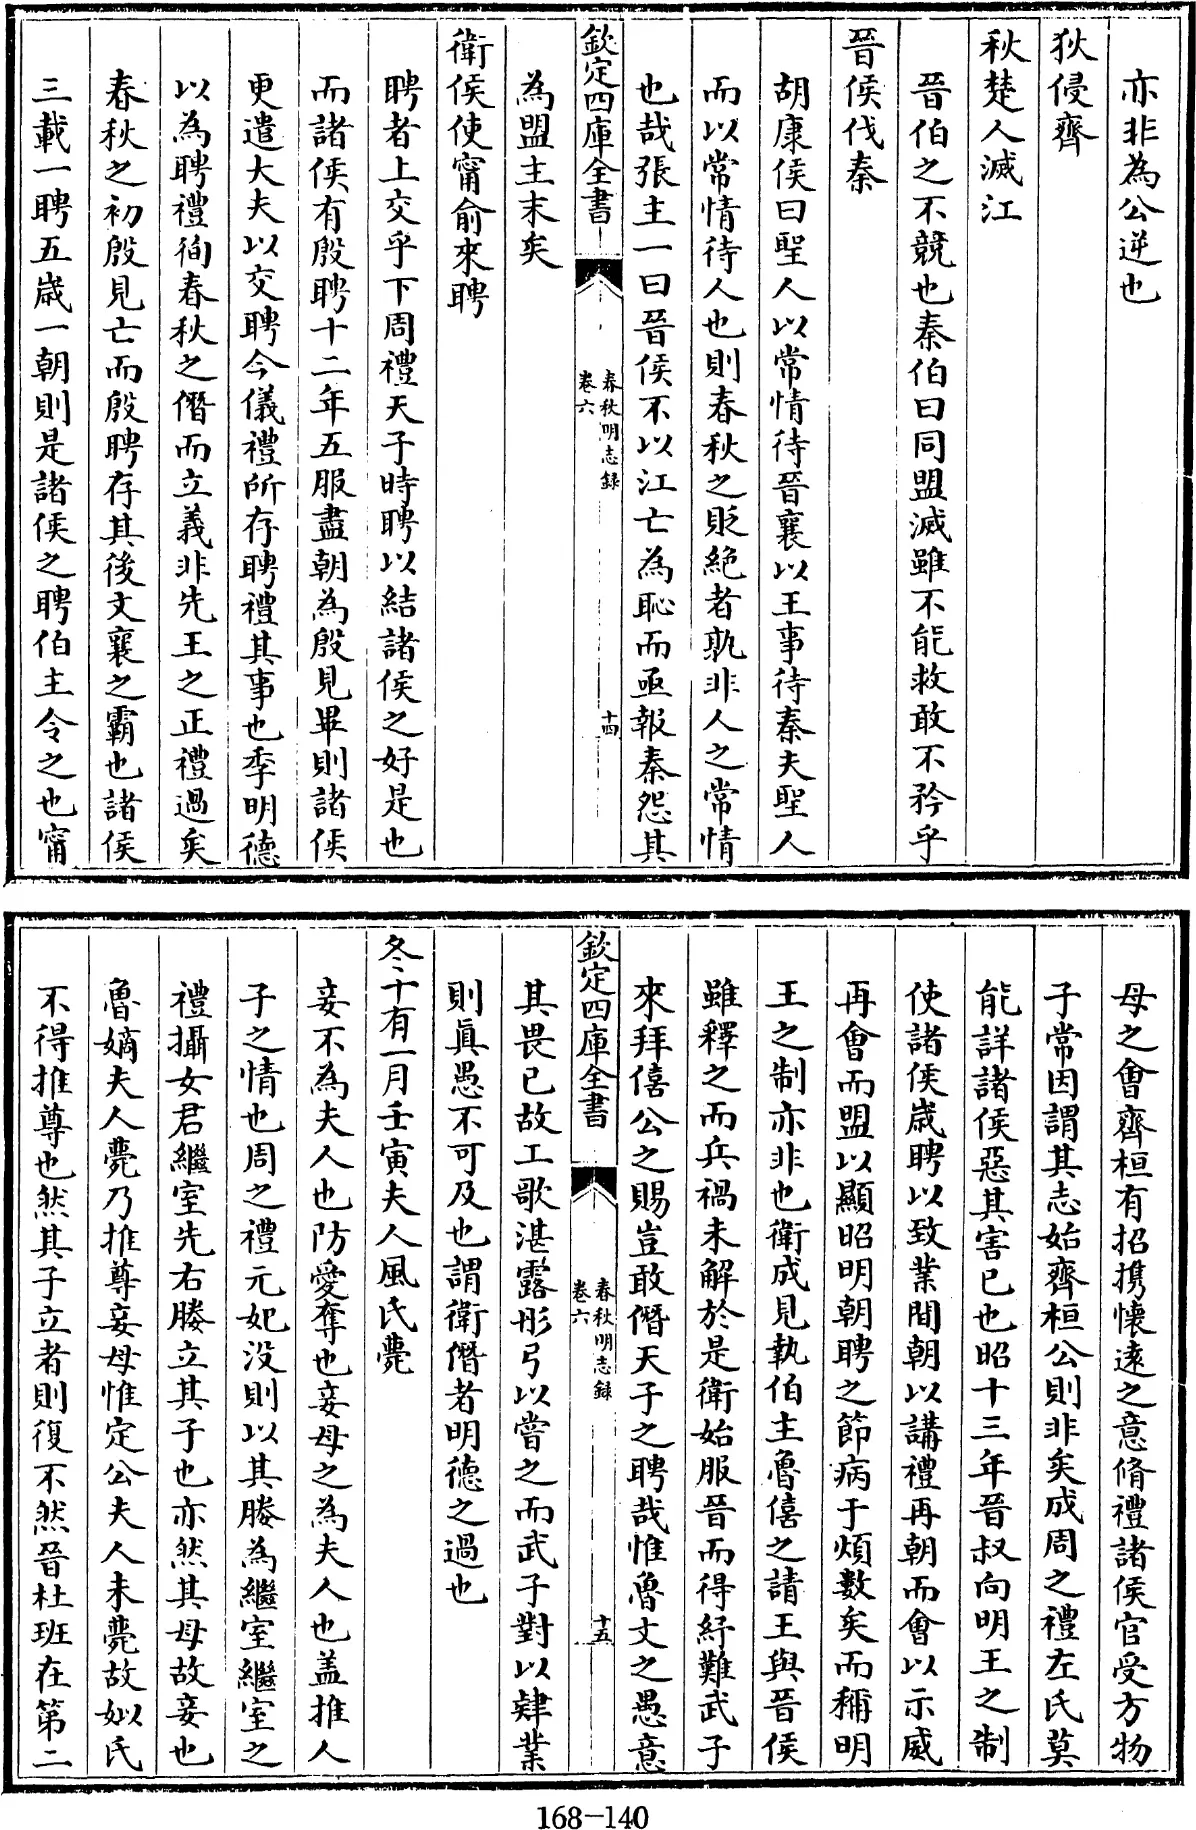 亦非為公逆也
狄侵齊
秋楚人滅江
晉伯之不競也秦伯曰同盟滅雖不能救敢不矜乎
晉侯伐秦
胡康侯曰聖人以常情待晉襄以王事待秦夫聖人
而以常情待人也則春秋之貶絶者孰非人之常情
也哉張主一曰晉侯不以江亡為恥而亟報秦怨其
欽定四庫全書
春秋明志録
卷六
十四
為盟主末矣
衛侯使甯俞來聘
聘者上交乎下周禮天子時聘以結諸侯之好是也
而諸侯有殷聘十二年五服盡朝為殷見畢則諸侯
更遣大夫以交聘今儀禮所存聘禮其事也季明德
以為聘禮徇春秋之僭而立義非先王之正禮過矣
春秋之初殷見亡而殷聘存其後文襄之霸也諸侯
三載一聘五歲一朝則是諸侯之聘伯主令之也甯
母之會齊桓有招攜懷遠之意脩禮諸侯官受方物
子常因謂其志始齊桓公則非矣成周之禮左氏莫
能詳諸侯惡其害已也昭十三年晉叔向明王之制
使諸侯歲聘以致業間朝以講禮再朝而會以示威
再會而盟以顯昭明朝聘之節病于煩數矣而稱明
王之制亦非也衛成見執伯主魯僖之請王與晉侯
雖釋之而兵禍未解於是衛始服晉而得紓難武子
來拜僖公之賜豈敢僭天子之聘哉惟魯文之愚意
欽定四庫全書
春秋明志録
卷六
十五
其畏已故工歌湛露彤弓以嘗之而武子對以肄業
則真愚不可及也謂衛僭者明德之過也
冬十有一月壬寅夫人風氏薨
妾不為夫人也防愛奪也妾母之為夫人也盖推人
子之情也周之禮元妃没則以其媵為繼室繼室之
禮攝女君繼室先右媵立其子也亦然其母故妾也
魯嫡夫人薨乃推尊妾母惟定公夫人未薨故姒氏
不得推尊也然其子立者則復不然晉杜班在第二
168-140